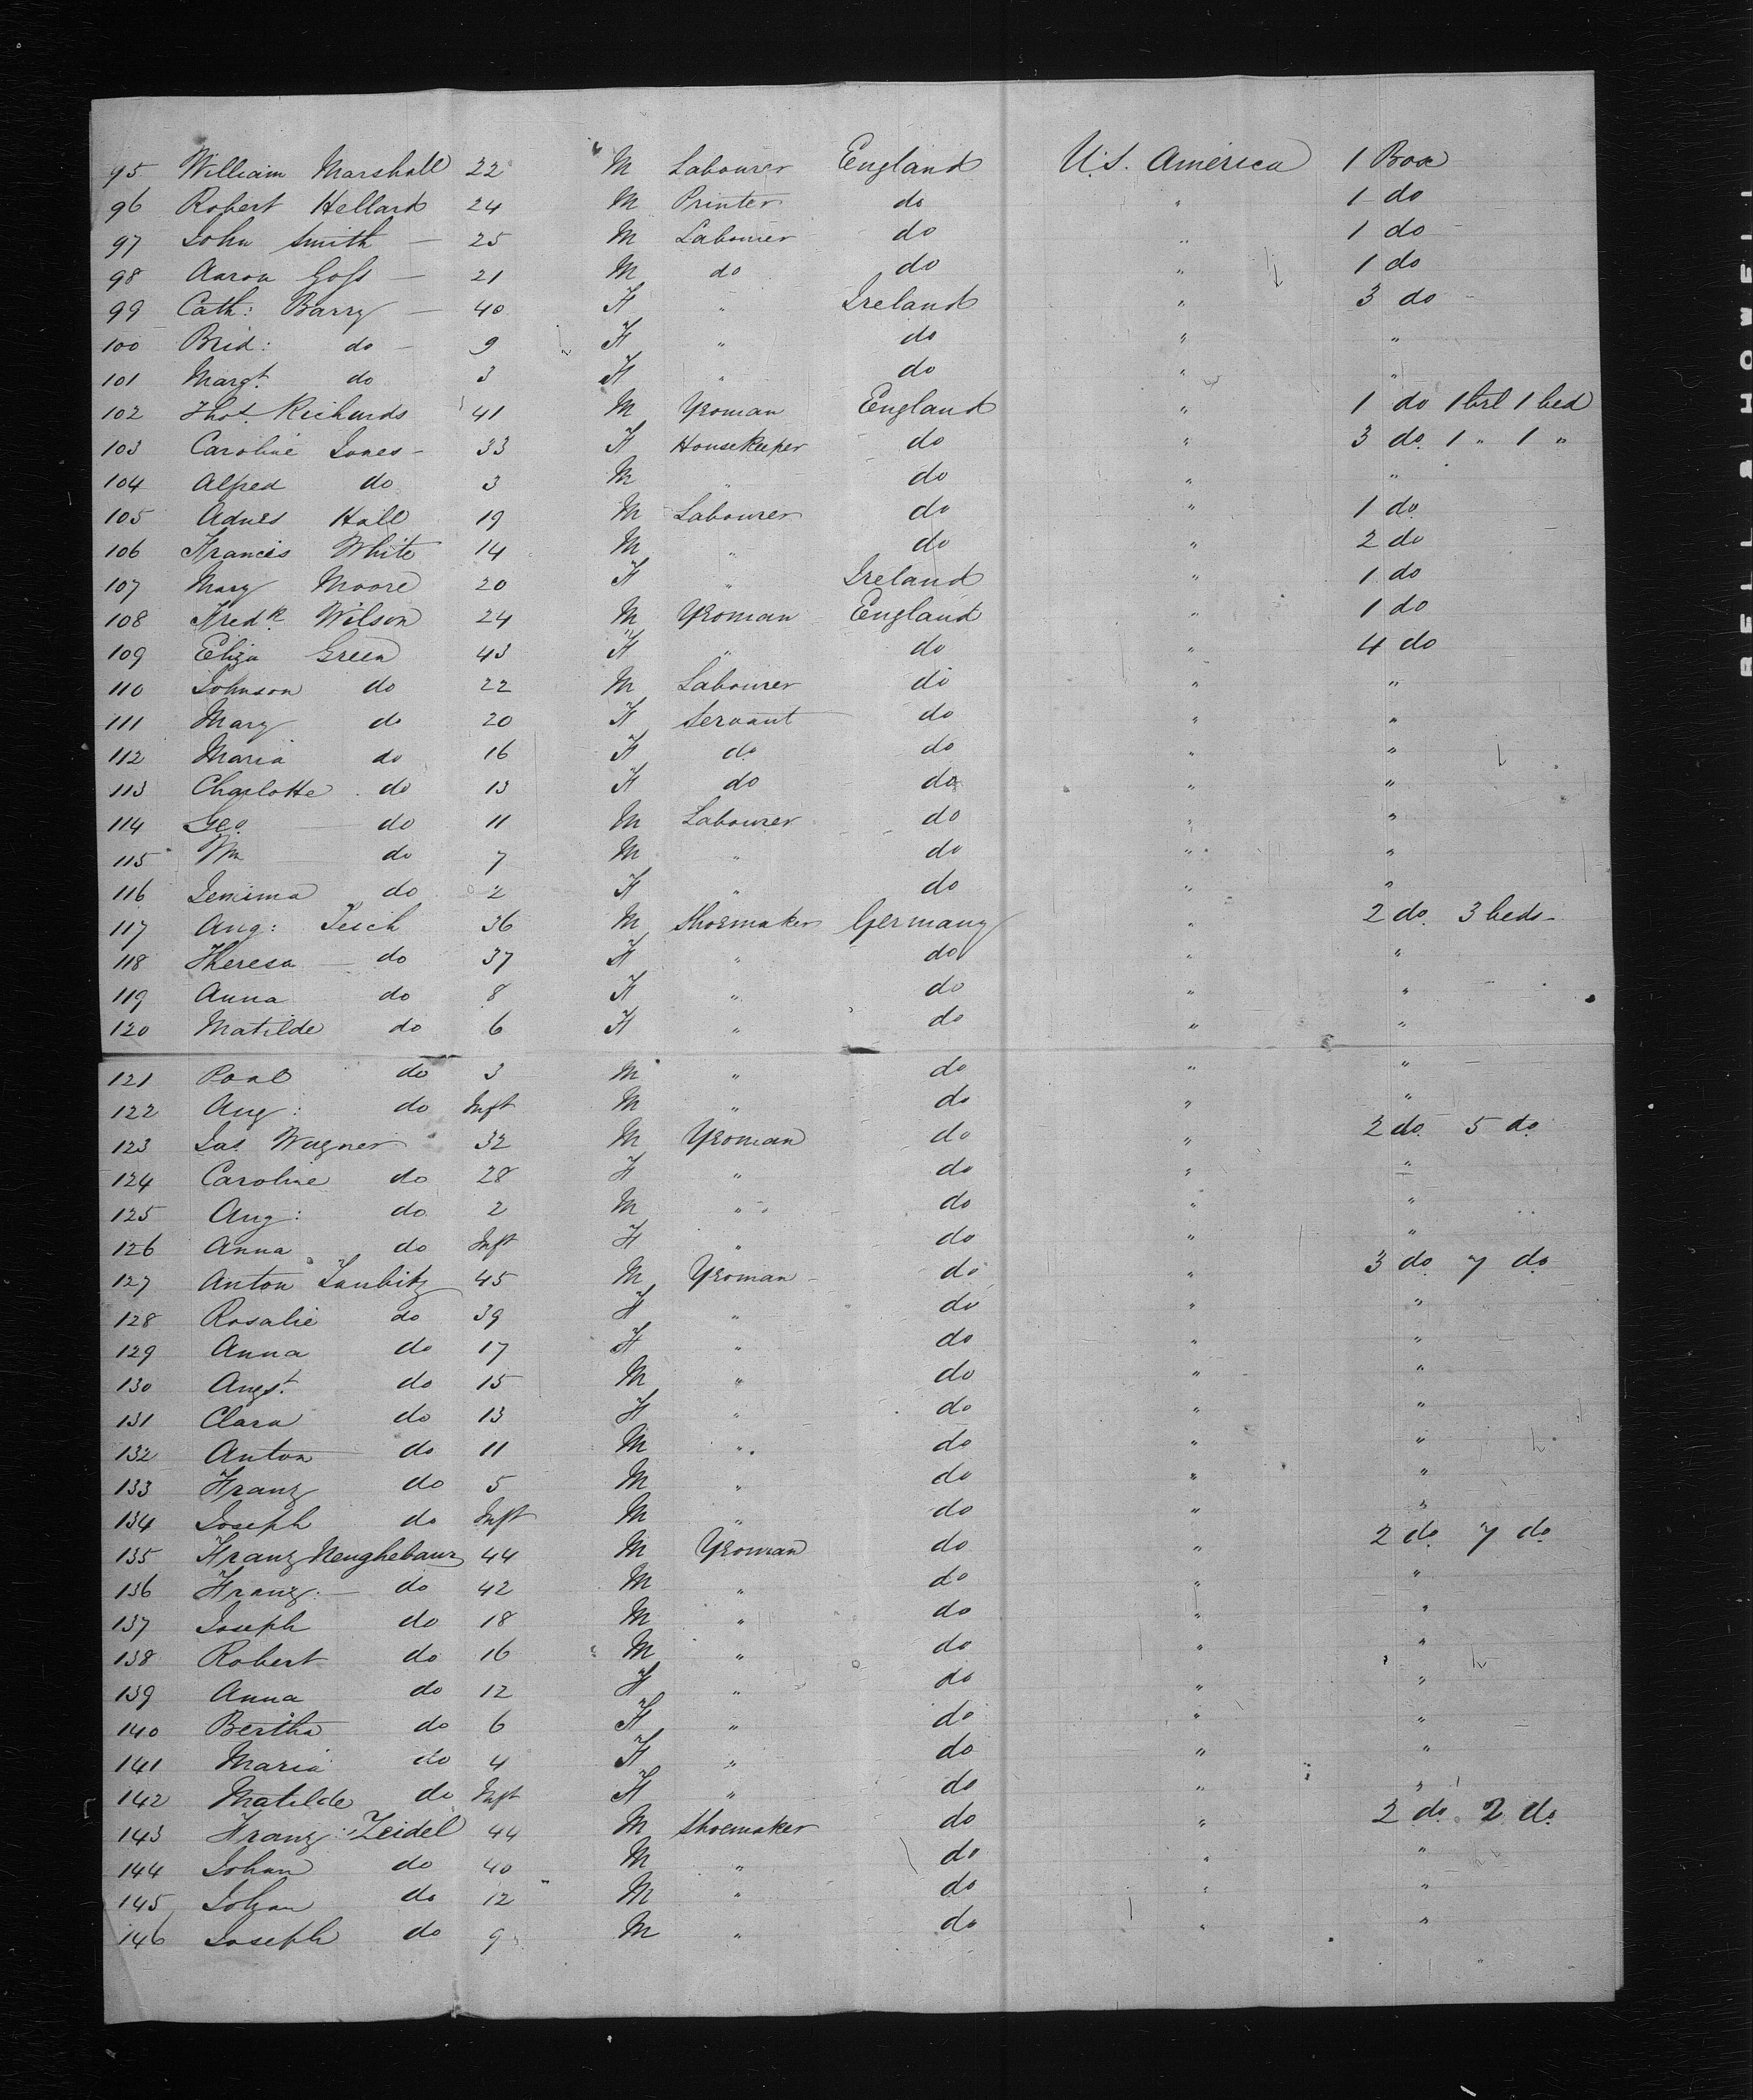 95 William Marshall 22 M Labourer England U.S. America 1 Box
96 Robert Hellard 24 M Printer do " 1 do
97 John Smith — 25 M Labourer do " 1 do
98 Aaron Goss — 21 M do do " 1 do
99 Cath: Barry — 40 F " Ireland " 3 do
100 Brid: do 9 F " do " "
101 Margt. do 3 F " do " "
102 Thos. Richards 41 M Yeoman England " 1 do 1 brl 1 bed
103 Caroline Jones 33 F Housekeeper do " 3 do 1 " 1 "
104 Alfred do 3 M " do " "
105 Adnes Hall 19 M Labourer do " 1 do
106 Francis White 14 M " do " 2 do
107 Mary Moore 20 F " Ireland " 1 do
108 Fredk. Wilson 24 M Yeoman England " 1 do
109 Eliza Green 43 F " do " 4 do
110 Johnson do 22 M Labourer do " "
111 Mary do 20 F Servant do " "
112 Maria do 16 F do do " "
113 Charlotte do 13 F do do " "
114 Geo. do 11 M Labourer do " "
115 Wm do 7 M " do " "
116 Jemima do 2 F " do " "
117 Aug: Teich 36 M Shoemaker Germany " 2 do 3 beds
118 Theresa — do 37 F " do " "
119 Anna do 8 F " do " "
120 Matilde do 6 F " do " "
121 Poal do 3 M " do " "
122 Aug: do Inft M " do " "
123 Jas. Wagner 32 M Yeoman do " 2 do 5 do
124 Caroline do 28 F " do " "
125 Aug: do 2 M " do " "
126 Anna do Inft F " do " "
127 Anton Taubitz 45 M Yeoman do " 3 do 7 do
128 Rosalie do 39 F " do " "
129 Anna do 17 F " do " "
130 Augst. do 15 M " do " "
131 Clara do 13 F " do " "
132 Anton do 11 M " do " "
133 Franz do 5 M " do " "
134 Joseph do Inft M " do " "
135 Franz Neughebaur 44 M Yeoman do " 2 do 7 do
136 Franz — do 42 M " do " "
137 Joseph do 18 M " do " "
138 Robert do 16 M " do " "
139 Anna do 12 F " do " "
140 Bertha do 6 F " do " "
141 Maria do 4 F " do " "
142 Matilde do Inft F " do " "
143 Franz Zeidel 44 M Shoemaker do " 2 do 2 do
144 Johan do 40 M " do " "
145 Johan do 12 M " do " "
146 Joseph do 9 M " do " "
BELL & HOWELL